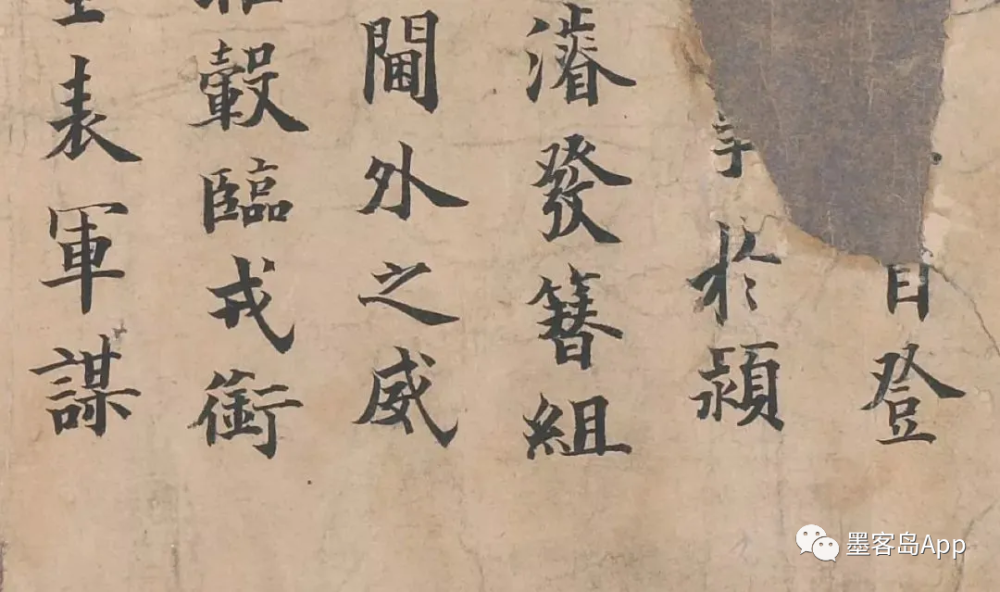 登
於潁
濬發簪組
閫外之威
轂臨戎銜
表軍謀
墨客岛App